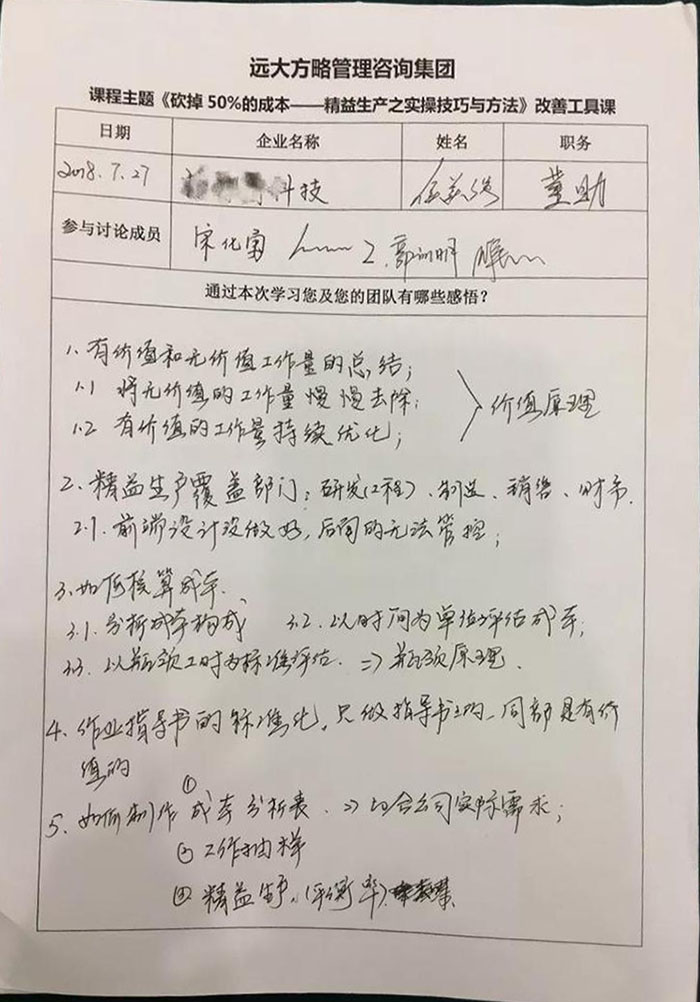 远大方略管理咨询集团
课程主题《砍掉50%的成本——精益生产之实操技巧与方法》改善工具课
日期 企业名称 姓名 职务
2018.7.27 科技 董助
参与讨论成员 宋化富
通过本次学习您及您的团队有哪些感悟?
1、有价值和无价值工作量的总结;
1.1 将无价值的工作量慢慢去除; 价值原理
1.2 有价值的工作量持续优化;
2、精益生产覆盖部门:研发(工程)、制造、销售、财务.
2.1.前端设计没做好,后面的无法管控;
3.如何核算成本.
3.1.分析成本构成 3.2.以时间为单位评估成本;
3.3.以瓶颈工时为标准评估. => 瓶颈原理.
4、作业指导书的标准化,只做指导书上的,同都是有价
值的
5、如何制作①成本分析表. => 切合公司实际需求;
②工作抽样
③精益生产.(平衡率)